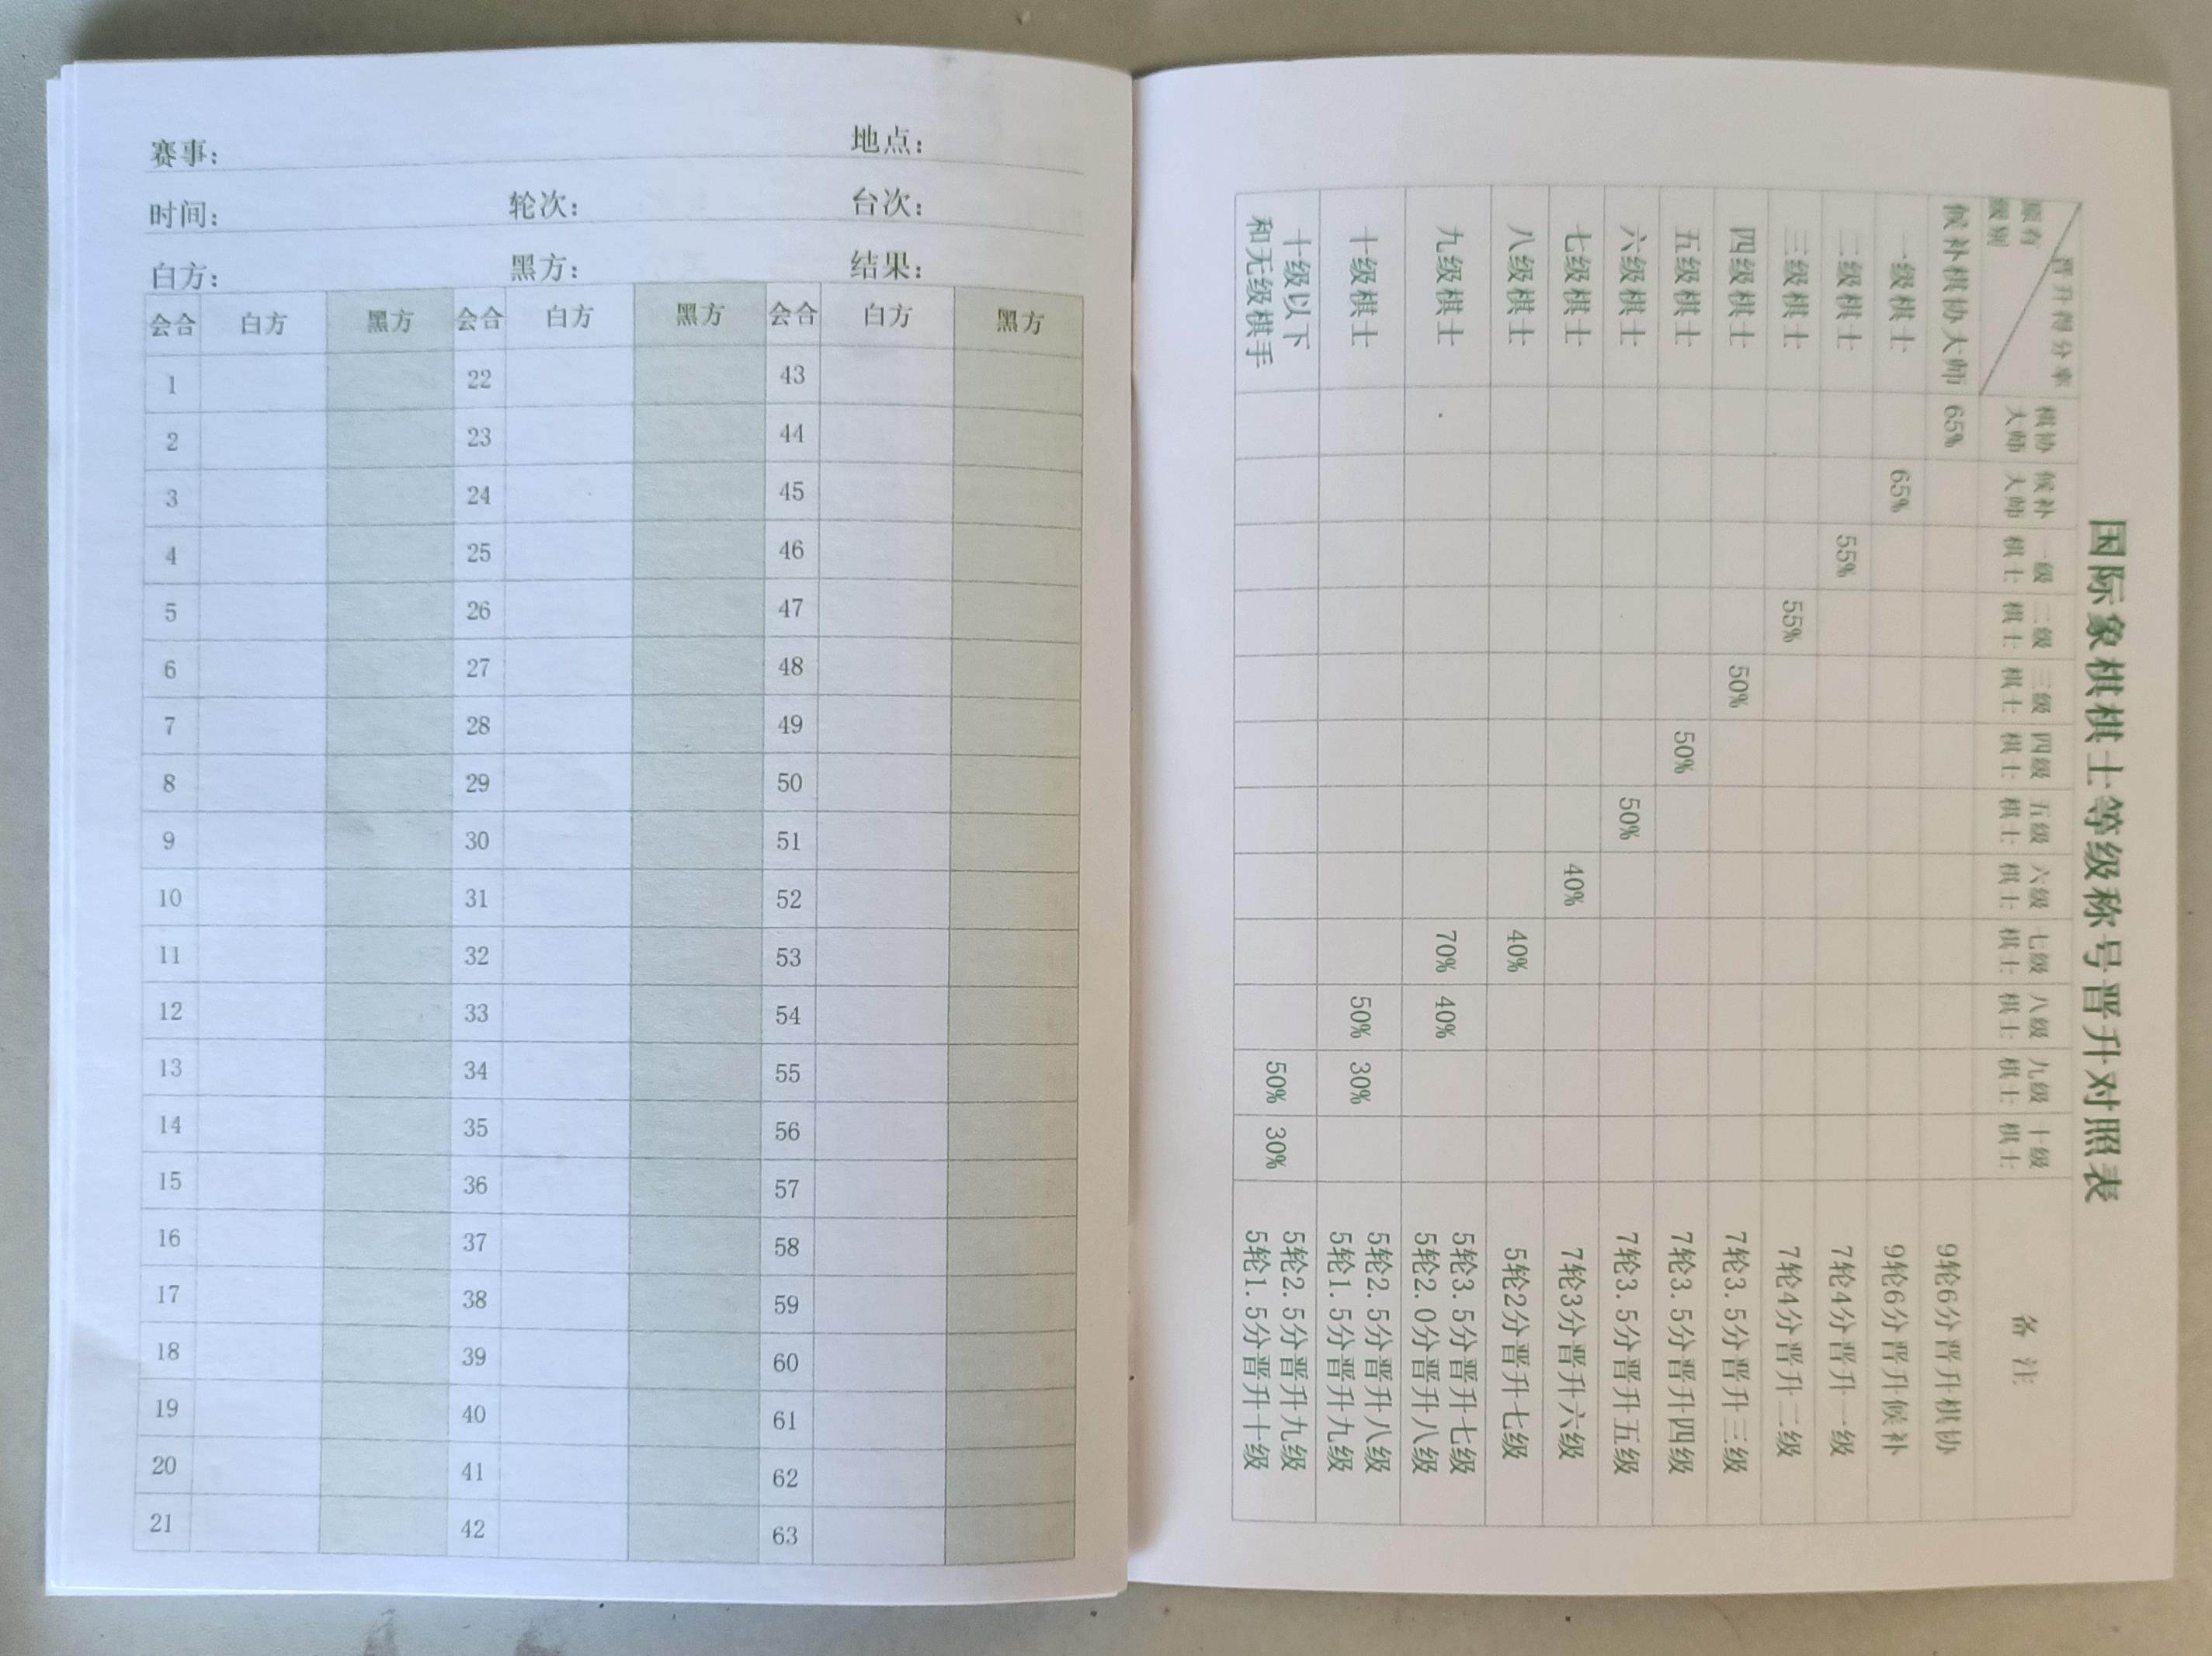 赛事： 地点：
时间： 轮次： 台次：
白方： 黑方： 结果：
会合 白方 黑方 会合 白方 黑方 会合 白方 黑方
1 22 43
2 23 44
3 24 45
4 25 46
5 26 47
6 27 48
7 28 49
8 29 50
9 30 51
10 31 52
11 32 53
12 33 54
13 34 55
14 35 56
15 36 57
16 37 58
17 38 59
18 39 60
19 40 61
20 41 62
21 42 63
国际象棋棋士等级称号晋升对照表
晋升得分率
原有
级别
棋协 候补 一级 二级 三级 四级 五级 六级 七级 八级 九级 十级
大师 大师 棋士 棋士 棋士 棋士 棋士 棋士 棋士 棋士 棋士 棋士
备注
候补棋协大师 65% 9轮6分晋升棋协
一级棋士 65% 9轮6分晋升候补
二级棋士 55% 7轮4分晋升一级
三级棋士 55% 7轮4分晋升二级
四级棋士 50% 7轮3.5分晋升三级
五级棋士 50% 7轮3.5分晋升四级
六级棋士 50% 7轮3.5分晋升五级
七级棋士 40% 7轮3分晋升六级
八级棋士 40% 5轮2分晋升七级
九级棋士 70% 40% 5轮3.5分晋升七级
5轮2.0分晋升八级
十级棋士 50% 30% 5轮2.5分晋升八级
5轮1.5分晋升九级
十级以下 50% 30% 5轮2.5分晋升九级
和无级棋手 5轮1.5分晋升十级